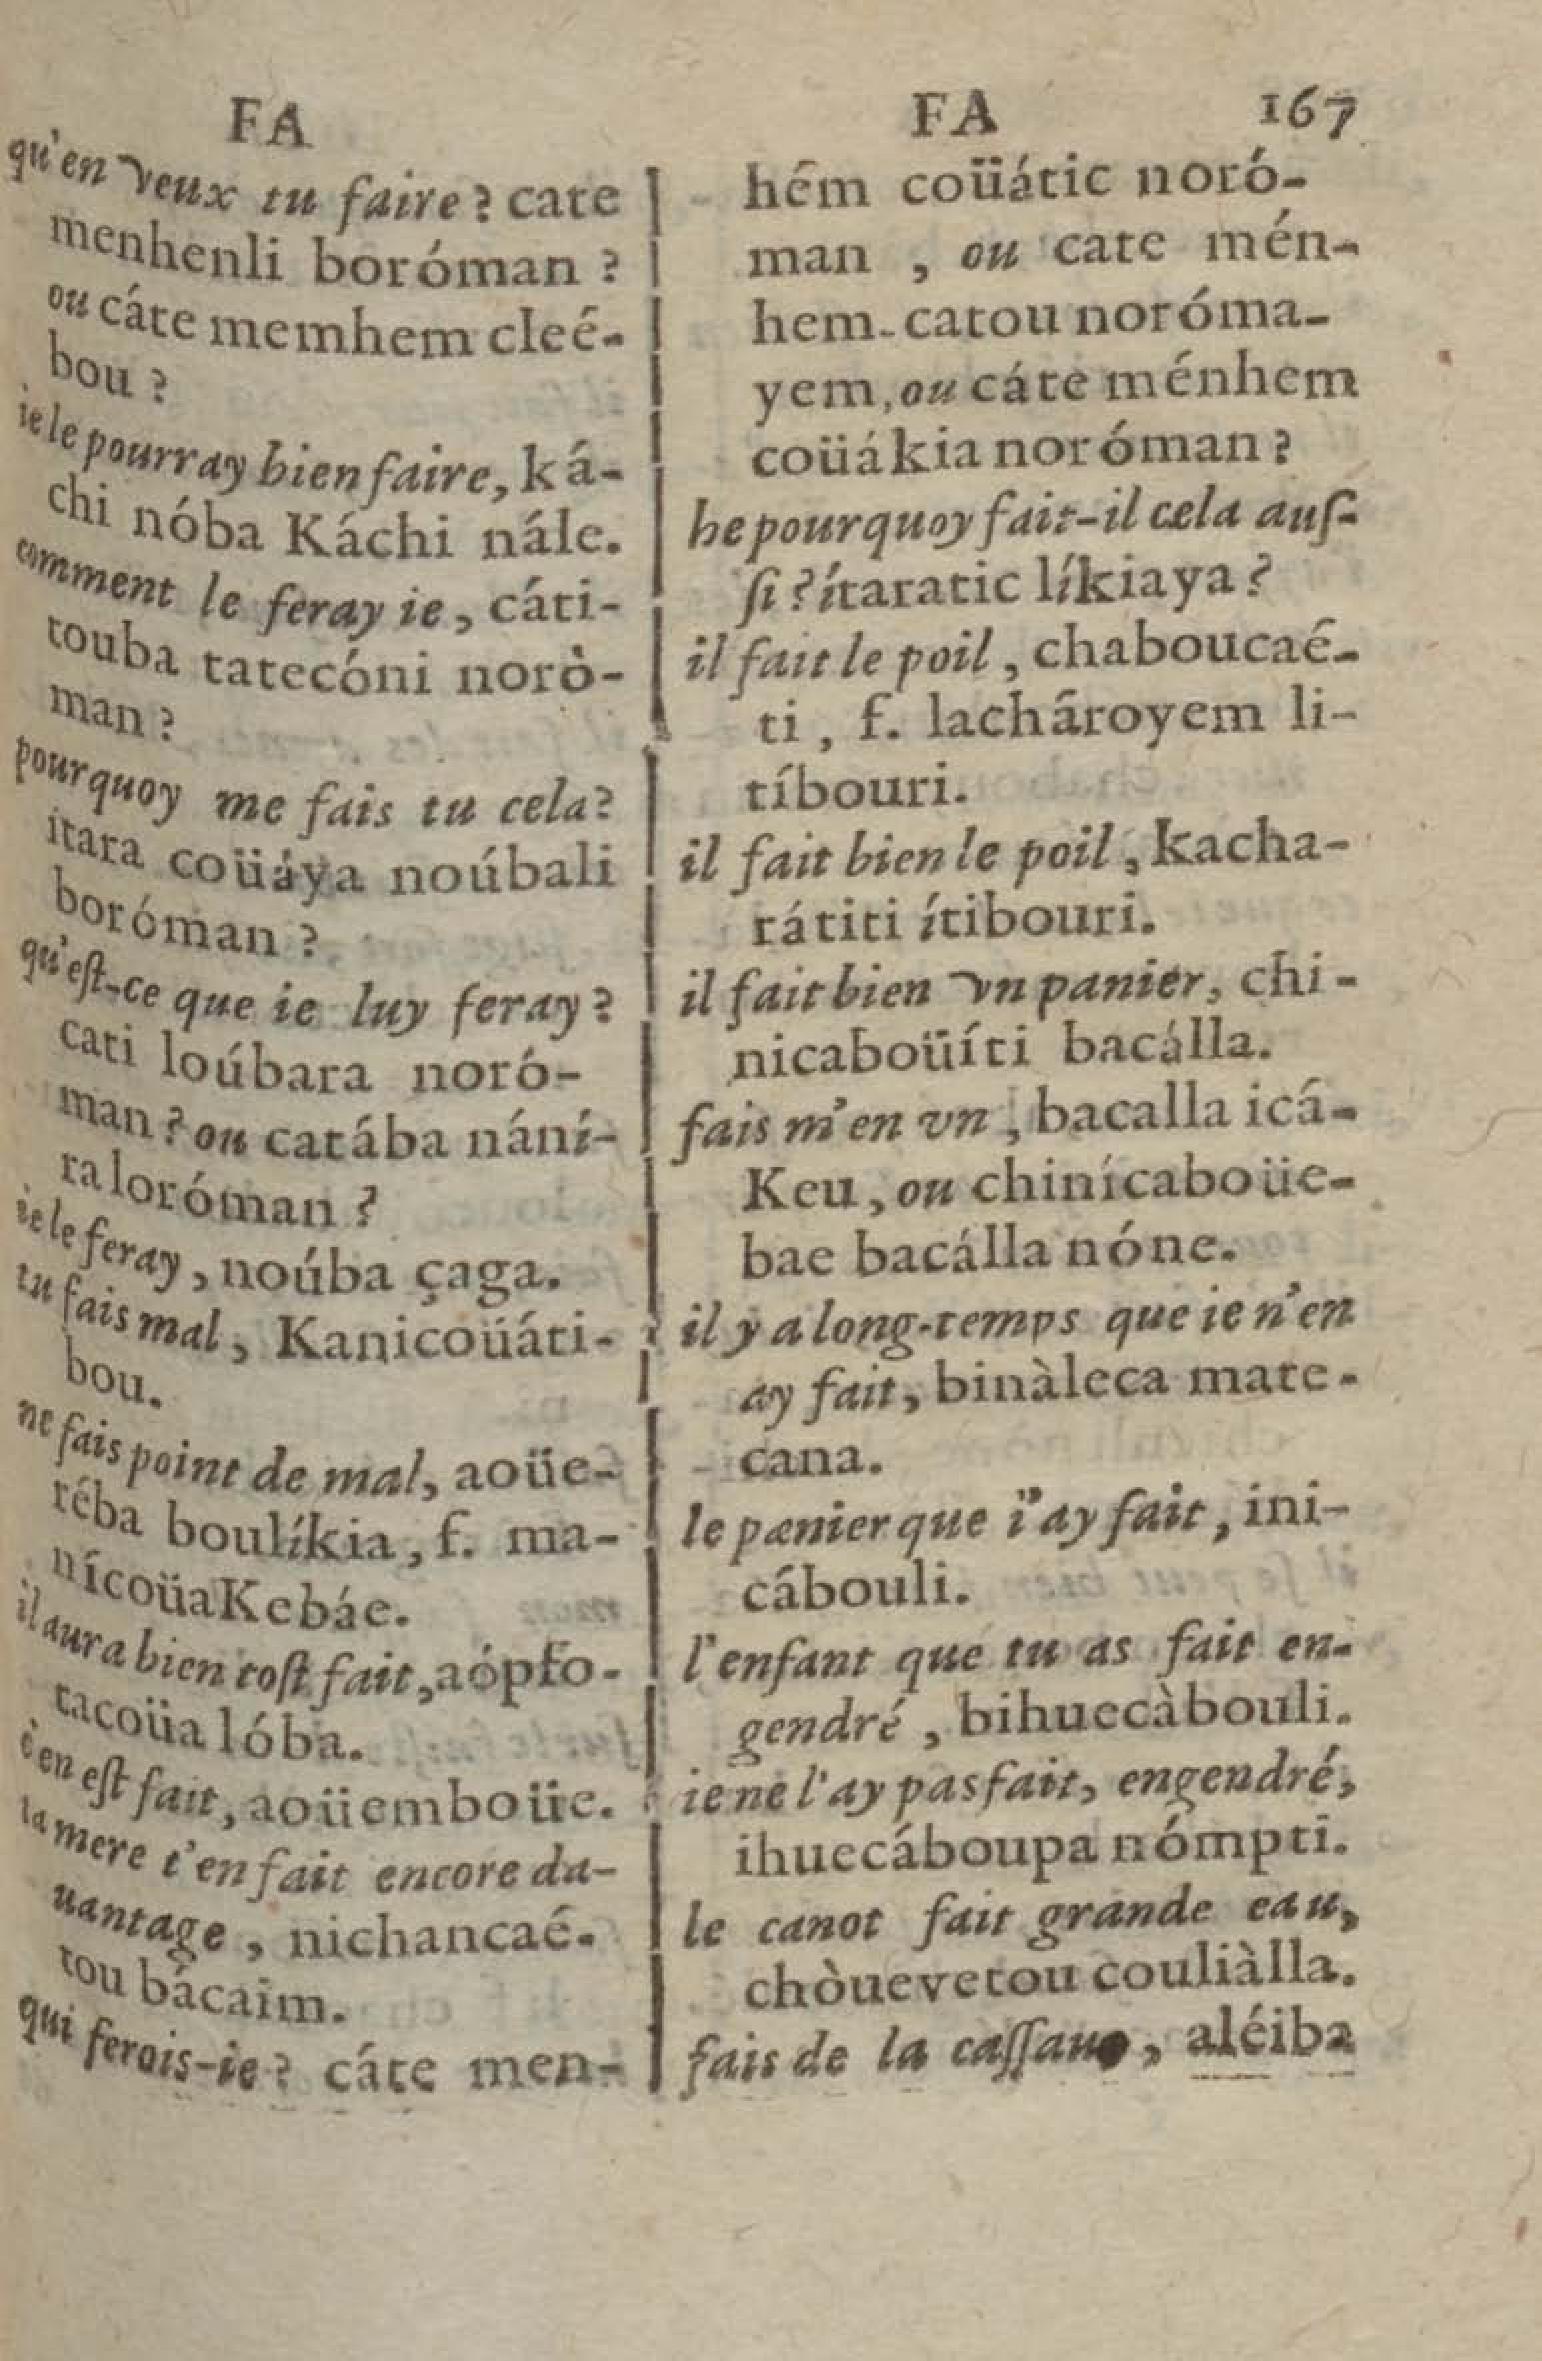 FA
qu'en veux tu faire ? cate
menhenli boróman ?
ou cáte memhem cleé-
bou ?
ie le pourray bien faire, ká-
chi nóba Káchi nále.
comment le feray ie, cáti-
touba tatecóni norò-
man ?
pourquoy me fais tu cela ?
ítara coüáya noúbali
boróman ?
qu'eſt-ce que ie luy feray ?
cati loúbara noró-
man ? ou catába nání-
ra loróman ?
ie le feray, noúba çaga.
tu fais mal, Kanicoüáti-
bou.
ne fais point de mal, aoüe-
réba boulíkia, f. ma-
nícoüaKebáe.
il aura bien toſt fait, aópfo-
tacoüa lóba.
c'en eſt fait, aoüemboüe.
la mere t'en fait encore da-
uantage, nichancaé-
tou bácaim.
qui ferois-ie ? cáte men-
FA 167
hém coüátic noró-
man, ou cate mén-
hem-catou noróma-
yem, ou cáte ménhem
coüákia noróman ?
he pourquoy fait-il cela auſ-
ſi ? ítaratic líkiaya ?
il fait le poil, chaboucaé-
ti, f. lachâroyem li-
tíbouri.
il fait bien le poil, kacha-
rátiti ítibouri.
il fait bien vn panier, chi-
nicaboüíti bacálla.
fais m'en vn, bacalla icá-
Keu, ou chinícaboüe-
bae bacálla nóne.
il y a long-temps que ie n'en
ay fait, binàleca mate-
cana.
le panier que i'ay fait, ini-
cábouli.
l'enfant que tu as fait en-
gendré, bihuecàbouli.
ie ne l'ay pas fait, engendré,
ihuecáboupa nómpti.
le canot fait grande eau,
chòuevetou couliàlla.
fais de la caſſaue, aléiba